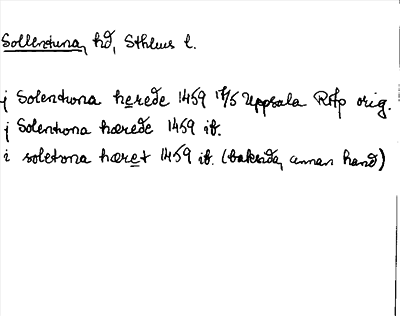 Sollentuna, hd, Sthlms l.
j Solentwna herede 1459 17/5 Uppsala RAp orig.
j Solentwna hærede 1459 ib.
i soletona hæret 1459 ib. (baksida, annan hand)